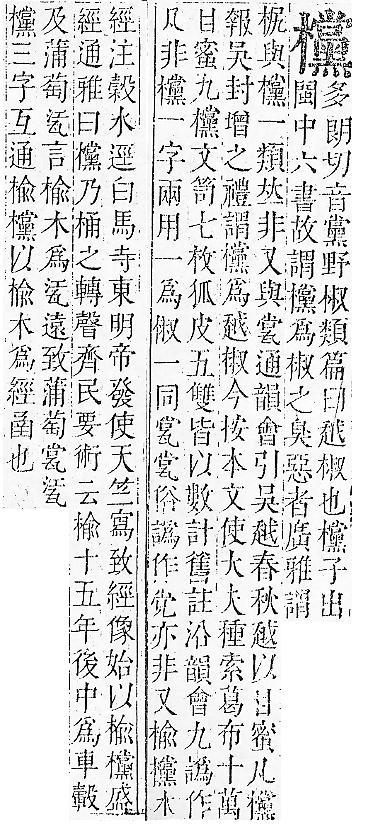 欓多朗切音黨野椒類篇曰越椒也欓子出
閩中六書故謂欓爲椒之臭惡者廣雅謂
與欓一類𠀤非又與瓽通韻會引吳越春秋越以甘蜜凡欓
報吳封增之禮謂欓爲越椒今按本文使大夫種索葛布十萬
甘蜜九欓文笥七枚狐皮五雙皆以數計舊註沿韻會九譌作
凡非欓一字兩用一爲椒一同瓽瓽俗譌作党亦非又楡欓水
經注穀水逕白馬寺東明帝發使天竺寫致經像始以楡欓盛
經通雅曰欓乃桶之轉聲齊民要術云楡十五年後中爲車轂
及蒲萄瓨言楡木爲瓨遠致蒲萄瓽瓨
欓三字互通楡欓以楡木爲經函也